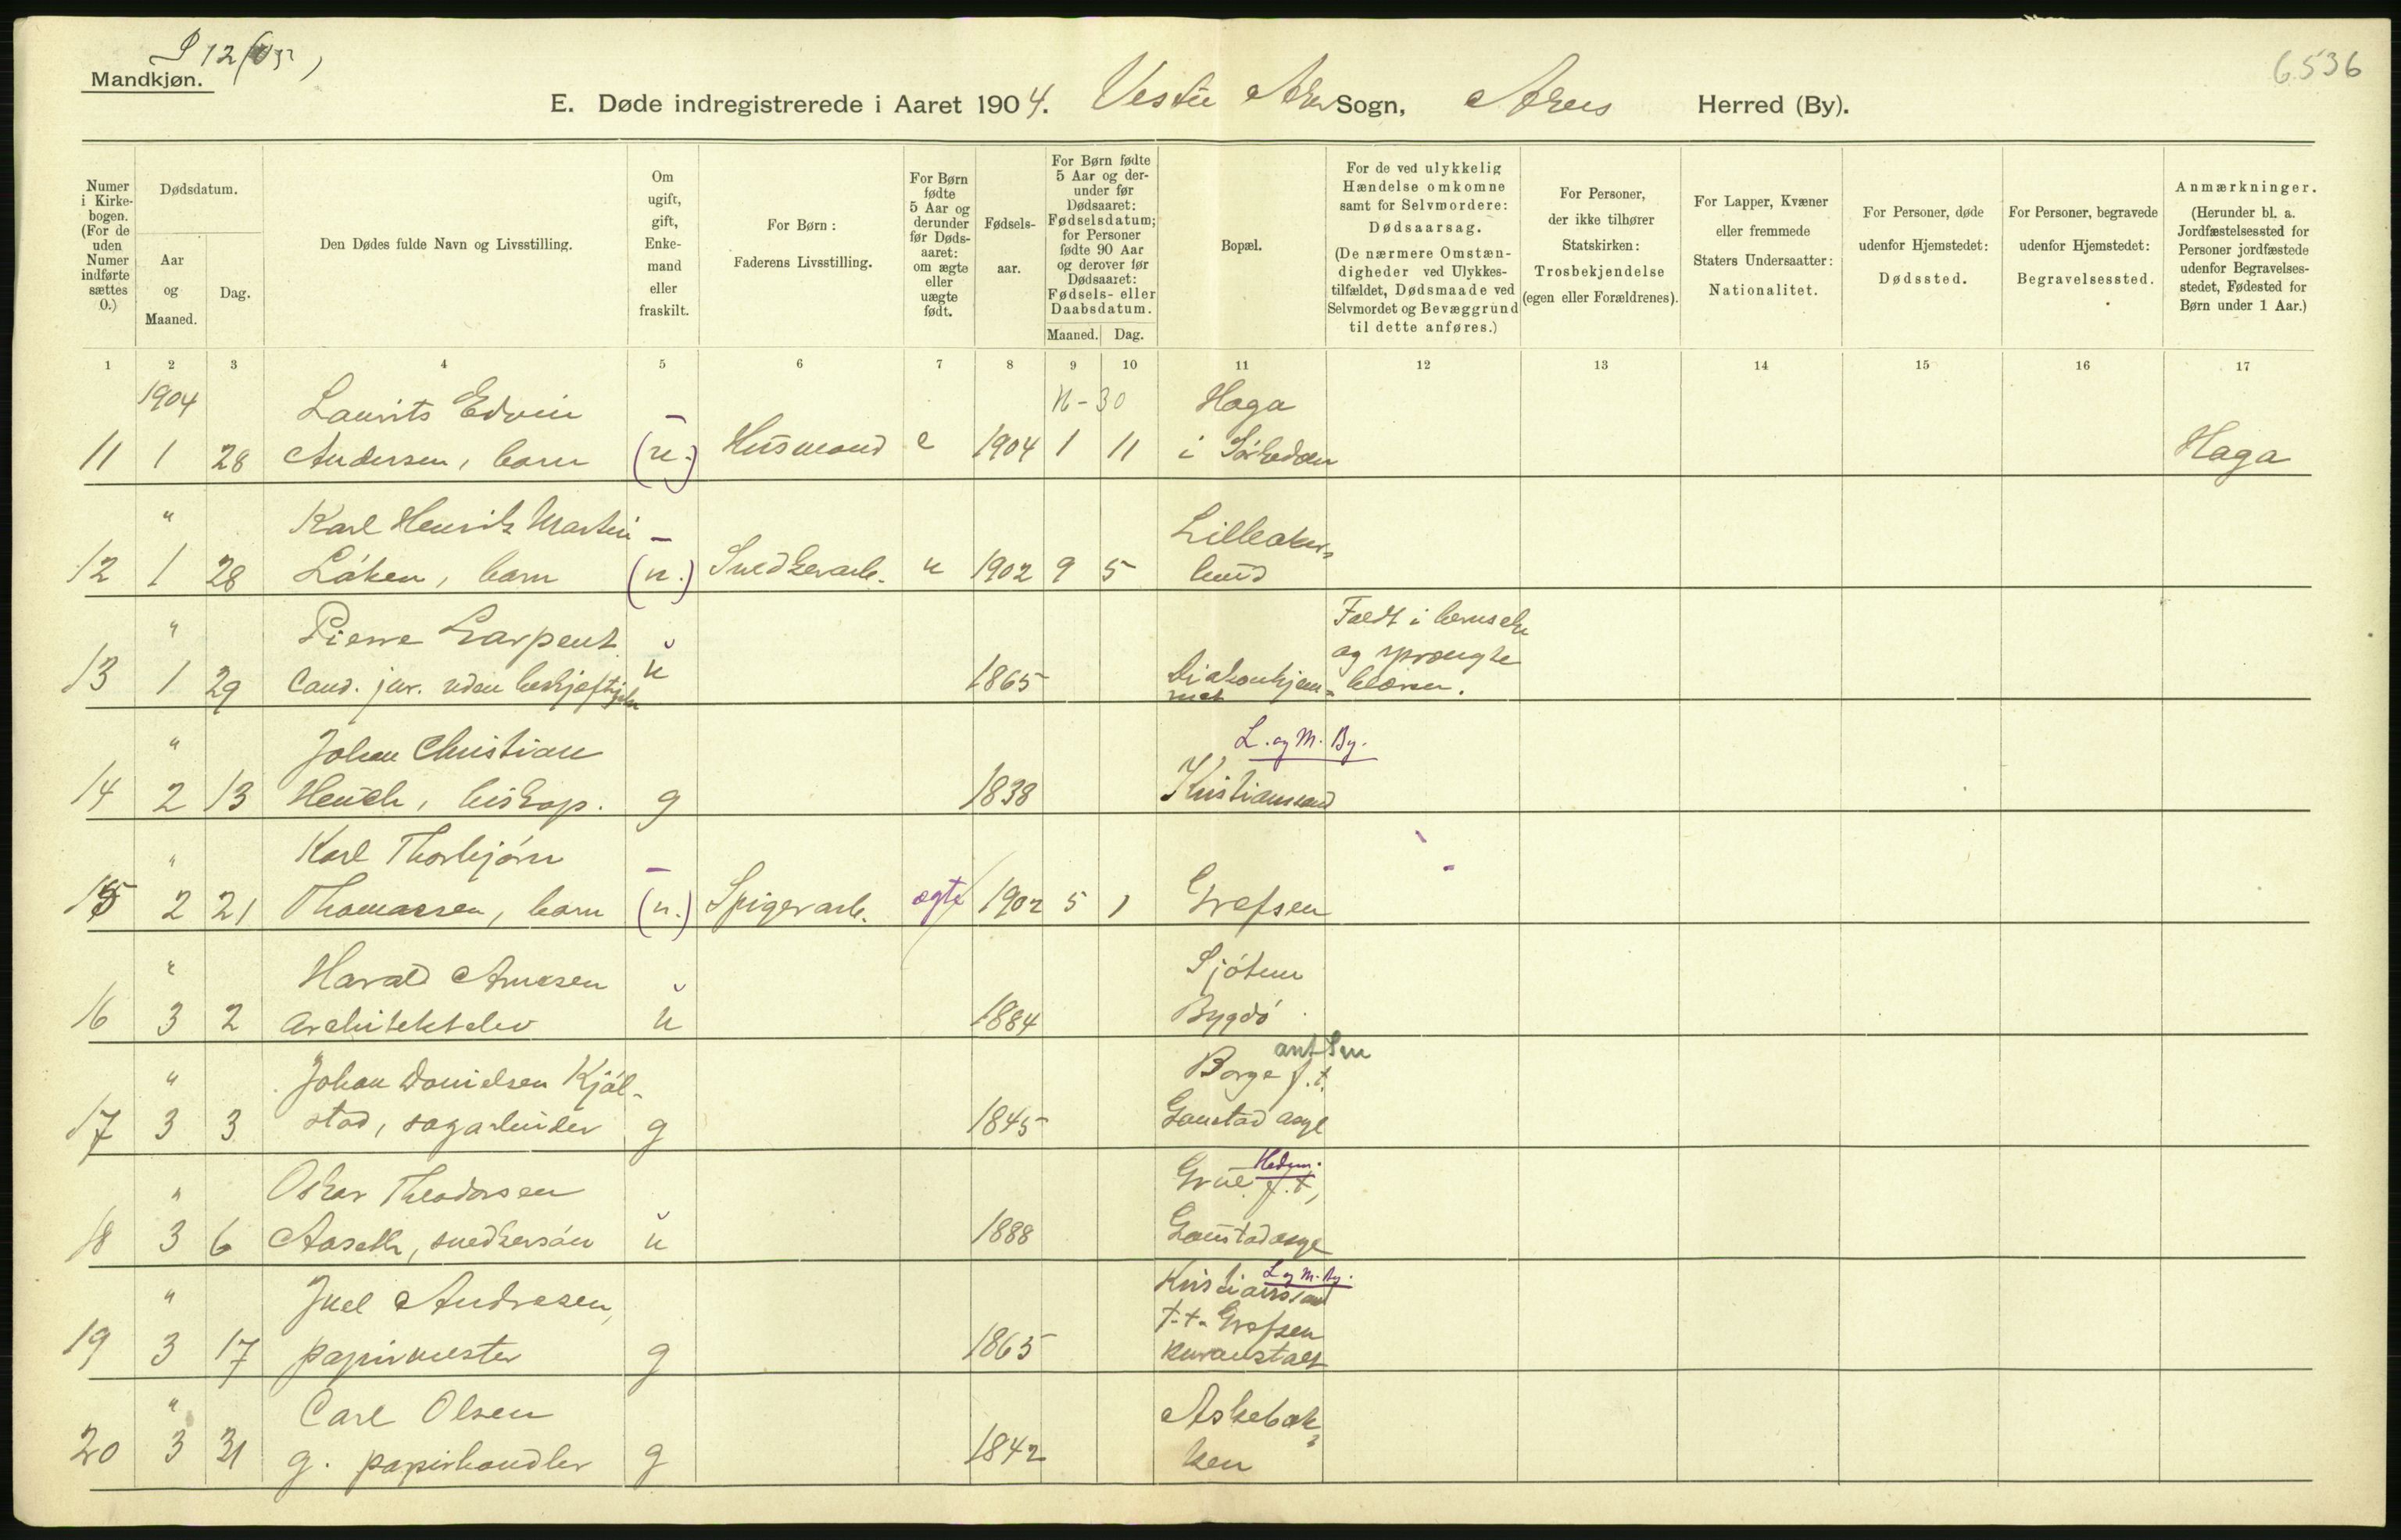 Mandkjøn.
6536
E. Døde indregistrerede i Aaret 1904. Vestre Aker Sogn, Akers Herred (By).
Numer i Kirkebogen. (For de uden Numer indførte sættes 0.)
Dødsdatum.
Aar og Maaned.
Dag.
Den Dødes fulde Navn og Livsstilling.
Om ugift, gift, Enkemand eller fraskilt.
For Børn:
Faderens Livsstilling.
For Børn fødte 5 Aar og derunder før Dødsaaret: om ægte eller uægte født.
Fødselsaar.
For Børn fødte 5 Aar og derunder før Dødsaaret: Fødselsdatum; for Personer fødte 90 Aar og derover før Dødsaaret: Fødsels- eller Daabsdatum.
Maaned. Dag.
Bopæl.
For de ved ulykkelig Hændelse omkomne samt for Selvmordere: Dødsaarsag.
(De nærmere Omstændigheder ved Ulykkestilfældet, Dødsmaade ved Selvmordet og Bevæggrund til dette anføres.)
For Personer, der ikke tilhører Statskirken: Trosbekjendelse (egen eller Forældrenes).
For Lapper, Kvæner eller fremmede Staters Undersaatter: Nationalitet.
For Personer, døde udenfor Hjemstedet: Dødssted.
For Personer, begravede udenfor Hjemstedet: Begravelsessted.
Anmærkninger.
(Herunder bl. a. Jordfæstelsessted for Personer jordfæstede udenfor Begravelsesstedet, Fødested for Børn under 1 Aar.)
1 2 3 4 5 6 7 8 9 10 11 12 13 14 15 16 17
1904 Laurits Edvin - 30 Haga
11 1 28 Andersen, barn (u.) Husmand e 1904 1 11 i Sørkedalen Haga
" Karl Henrik Martin - Lilleakers
12 1 28 Løken, barn (u.) Snedkerarb. u 1902 9 5 bund
" Pierre Larpent Faldt i
og sprængte
13 1 29 Cand. jur. uden beskjæftigelse u 1865 Diakonhjemmet blæren.
" Johan Christian L. og M. By.
14 2 13 Heuch, biskop. g 1838 Kristianssand
" Karl Thorbjørn -
15 2 21 Thomassen, barn (u.) Spigerarb. ægte 1902 5 1 Grefsen
" Harald Arnesen Sjøtun
16 3 2 Architektelev u 1884 Bygdø
" Johan Danielsen Kjøl- Borge f.t.
17 3 3 stad, sagarbeider g 1845 Gaustad asyl
" Oskar Theodorsen Grue Hedm. f.t,
18 3 6 Aaseth, snedkersøn u 1888 Gaustad asyl
" Juel Andresen, Kristianssand L og M. By.
t.t. Grefsen
19 3 17 papirmester g 1865 kuranstalt
" Carl Olsen Askebæk-
20 3 31 g. papirhandler g 1842 ken